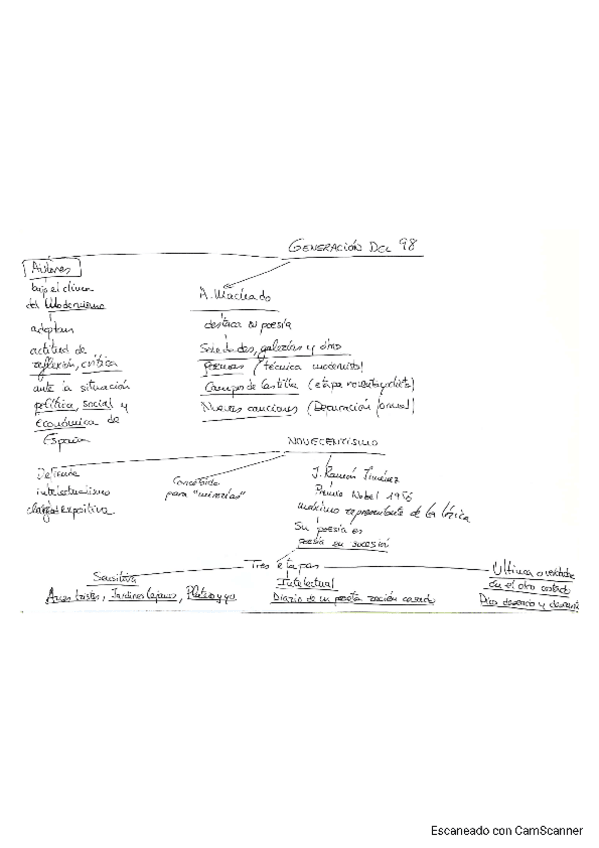 GENERACIÓN DEL 98
Autores
bajo el clima
del Modernismo
adoptan
actitud de
reflexión, crítica
ante la situación
política, social y
económica de
España
A. Machado
destaca su poesía
Soledades, galerías y otros
Poemas (técnica modernista)
Campos de Castilla (etapa noventayochista)
Nuevas canciones (Decuración formal)
NOVECENTISMO
Defiende
intelectualismo
claridad expositiva.
Concebido
para "minorías"
J. Ramón Jiménez
Premio Nobel 1956
máximo representante de la lírica
Su poesía es
poesía en sucesión
Tres etapas
Sensitiva
Arias tristes, Jardines lejanos, Platero y yo
Intelectual
Diario de un poeta recién casado
Última o verdadera
En el otro costado
Dios deseado y deseante
Escaneado con CamScanner